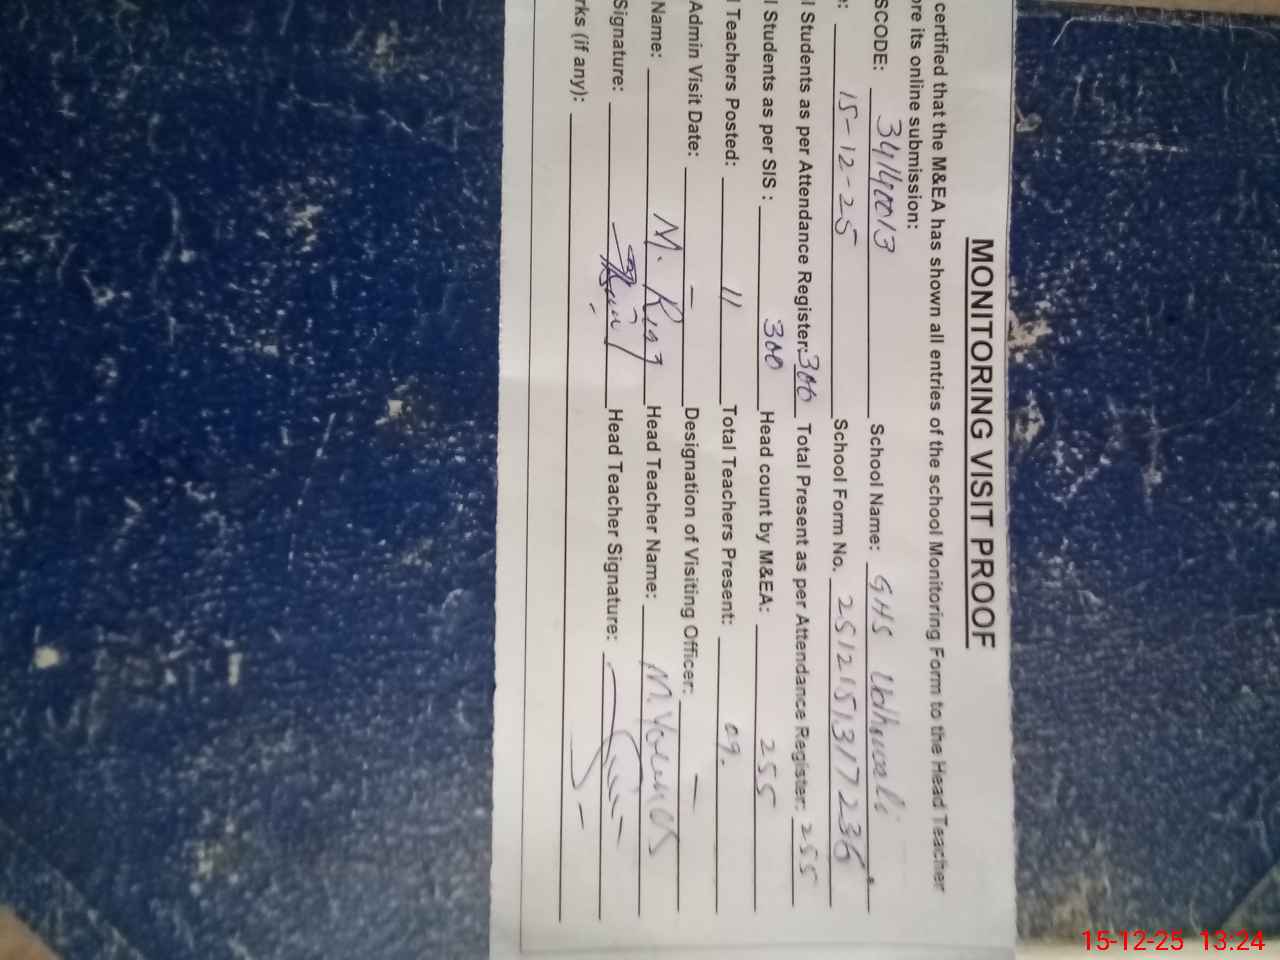 MONITORING VISIT PROOF
certified that the M&EA has shown all entries of the school Monitoring Form to the Head Teacher
ore its online submission:
SCODE: 34140013 School Name: GHS Udhowali
e: 15-12-25 School Form No. 2512151317236
l Students as per Attendance Register: 300 Total Present as per Attendance Register: 255
l Students as per SIS : 300 Head count by M&EA: 255
l Teachers Posted: 11 Total Teachers Present: 09.
Admin Visit Date: — Designation of Visiting Officer: —
Name: M. Riaz Head Teacher Name: M. Younas
Signature: Head Teacher Signature:
rks (if any):
15-12-25 13:24